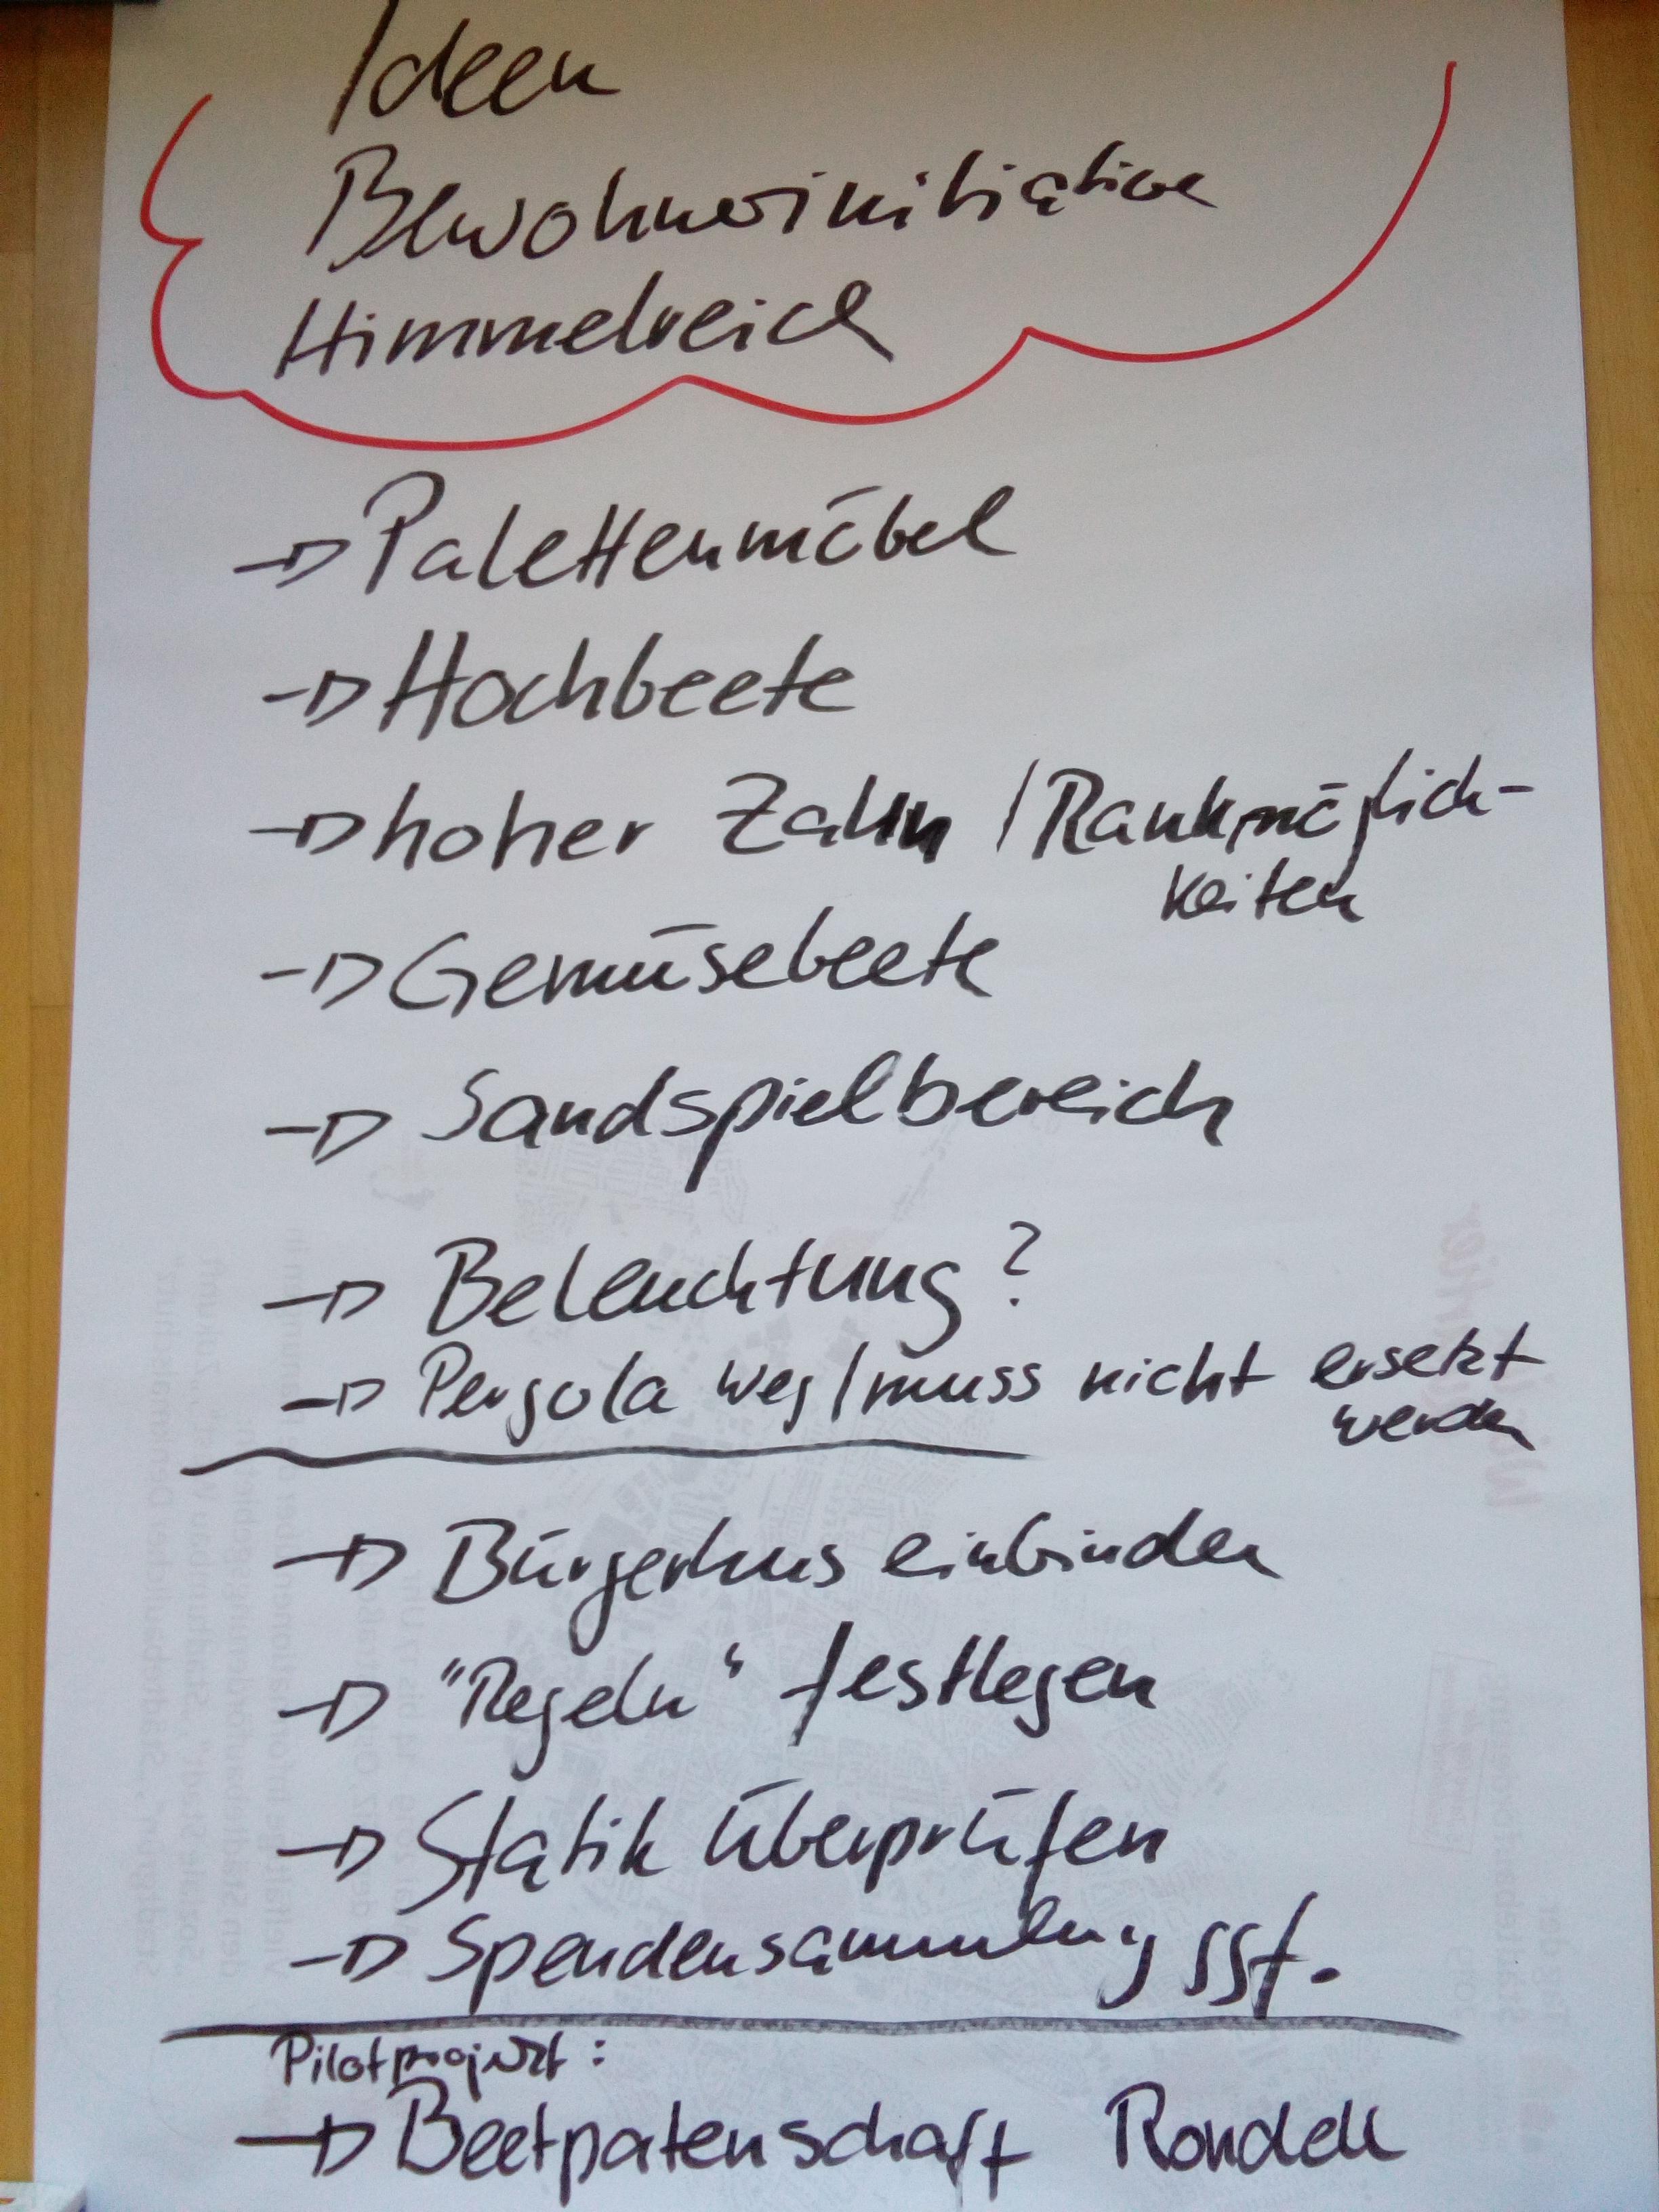 Ideen
Bewohnerinitiative
Himmelreich
→ Palettenmöbel
→ Hochbeete
→ hoher Zahn / Rankmöglich-
keiten
→ Gemüsebeete
→ Sandspielbereich
→ Beleuchtung?
→ Pergola weg / muss nicht ersetzt
werden
→ Bürgerhus einbinden
→ "Regeln" festlegen
→ Statik überprüfen
→ Spendensammlung ggf.
Pilotprojekt:
→ Beetpatenschaft Rondell